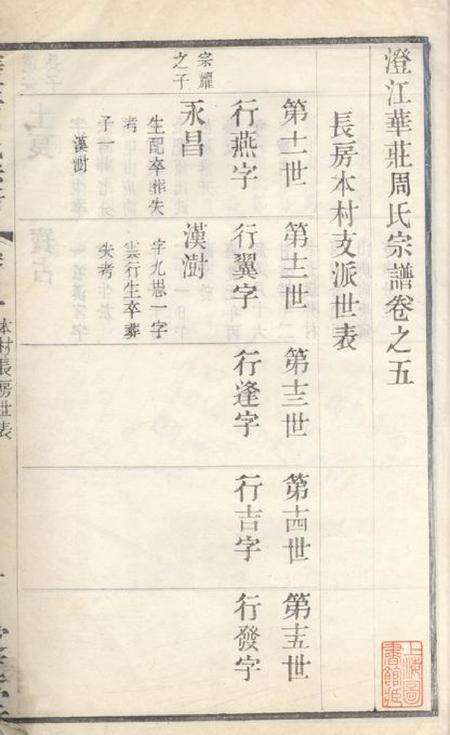 澄江華莊周氏宗譜卷之五
長房本村支派世表
第十一世
第十二世
第十三世
第十四世
第十五世
行燕字
行翼字
行逢字
行吉字
行發字
宗耀
之子
永昌
生配卒葬失
考
子一
漢澍
漢澍
字九思一字
雲行生卒葬
失考
本村長房世表
上海圖
書館藏